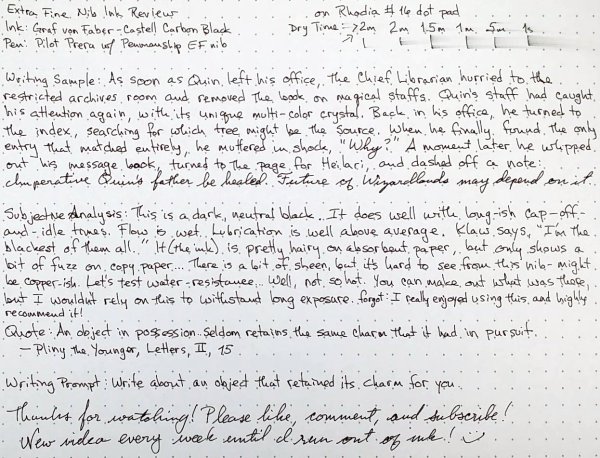 Extra Fine Nib Ink Review on Rhodia #16 dot pad
Ink: Graf von Faber-Castell Carbon Black Dry Time: >2m 2m 1.5m 1m .5m 1s
Pen: Pilot Prera w/ Penmanship EF nib
Writing Sample: As soon as Quin left his office, the Chief Librarian hurried to the
restricted archives room and removed the book on magical staffs. Quin's staff had caught
his attention again, with its unique multi-color crystal. Back in his office, he turned to
the index, searching for which tree might be the source. When he finally found the only
entry that matched entirely, he muttered in shock, "Why?" A moment later he whipped
out his message book, turned to the page for Heilari, and dashed off a note:
Imperative Quin's father be healed. Future of Wizardlands may depend on it.
Subjective Analysis: This is a dark, neutral black. It does well with long-ish cap-off-
and-idle times. Flow is wet. Lubrication is well above average. Klaw says, "I'm the
blackest of them all." It (the ink) is pretty hairy on absorbent paper, but only shows a
bit of fuzz on copy paper... There is a bit of sheen, but it's hard to see from this nib-might
be copper-ish. Let's test water-resistance... Well, not so hot. You can make out what was there,
but I wouldn't rely on this to withstand long exposure. forgot: I really enjoyed using this, and highly
recommend it!
Quote: An object in possession seldom retains the same charm that it had in pursuit.
— Pliny the Younger, Letters, II, 15
Writing Prompt: Write about an object that retained its charm for you.
Thanks for watching! Please like, comment, and subscribe!
New video every week until I run out of ink! :)